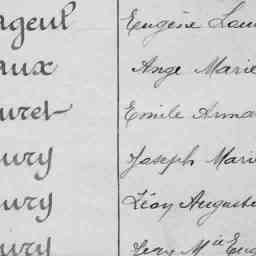 ageul Eugène Lou
aux Ange Marie
uret Emile Arma
ury Joseph Mari
ury Léon Auguste
ury Jean Mie Eug